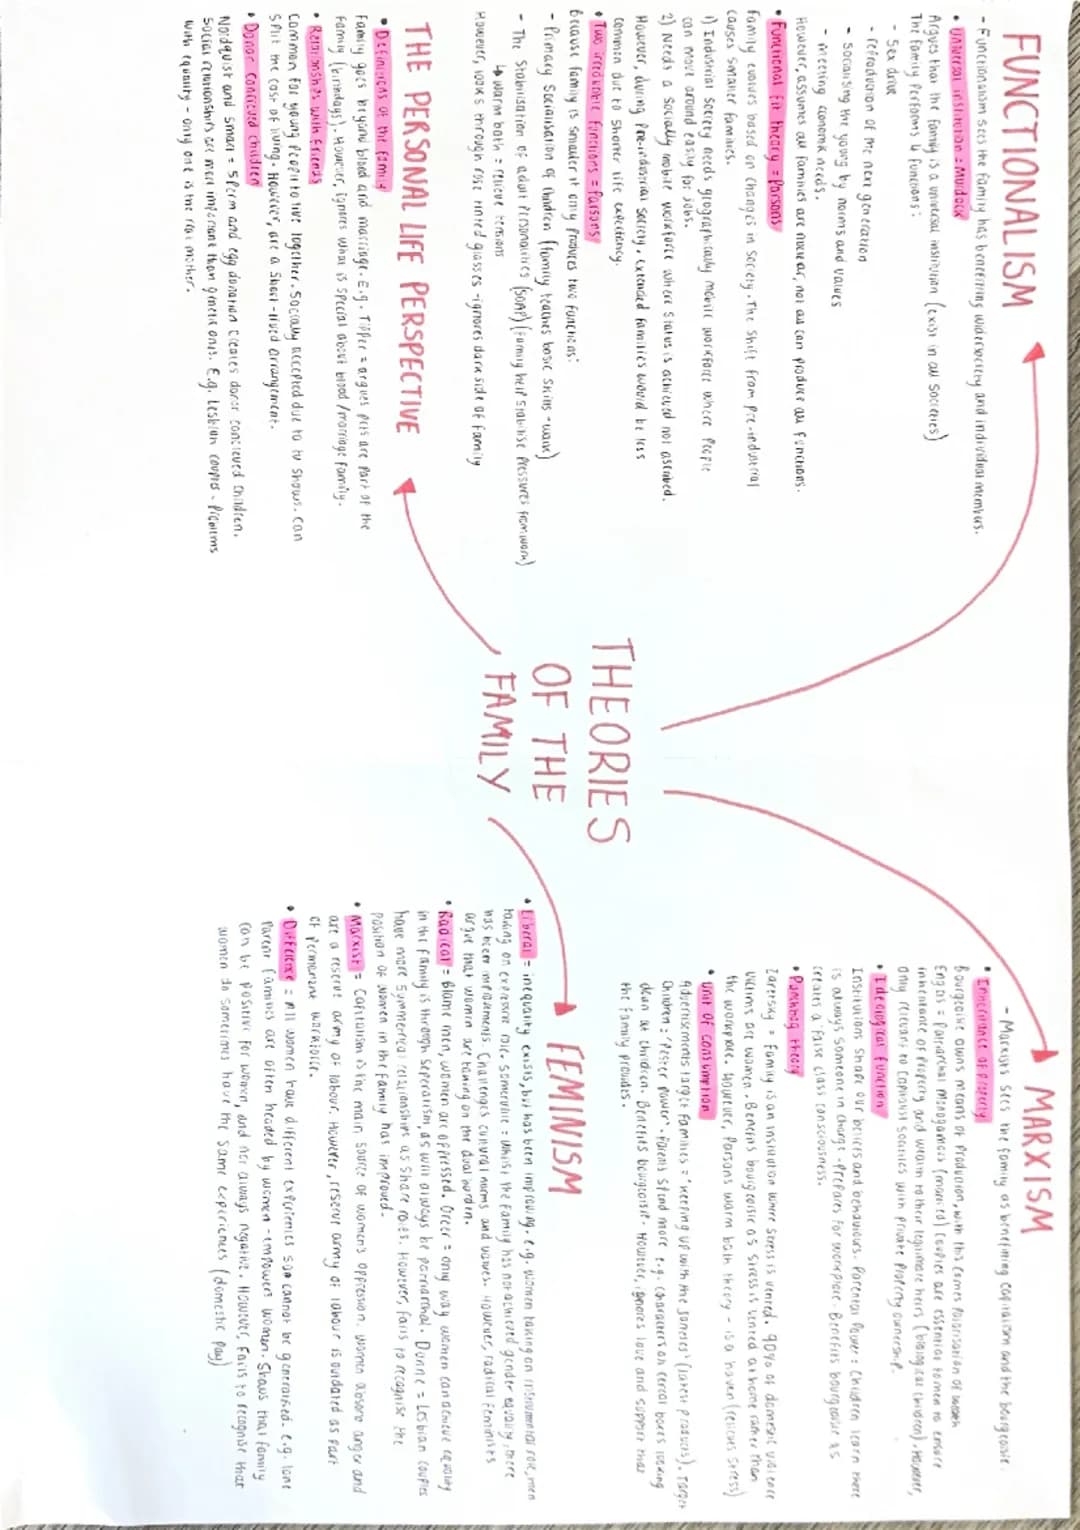 FUNCTIONALISM
- Functionalism sees the family has benefitting wider society and individual members.
• Universal institution = Murdock
Argues that the family is a universal institution (exist in all societies)
The family performs 4 functions:
- Sex drive
- reproduction of the next generation
- Socialising the young by norms and values
- meeting economic needs.
However, assumes all families are nuclear, not all can produce all functions.
• Functional fit theory = Parsons
Family evolves based on changes in society. The shift from pre-industrial
causes smaller families.
1) Industrial society needs geographically mobile workforce where people
can move around easily for jobs.
2) Needs a socially mobile workforce where status is achieved not ascribed.
However, during pre-industrial society, extended families would be less
common due to shorter life expectancy.
• Two irreducible functions = Parsons
Because family is smaller it only produces two functions:
- Primary Socialisation of children (family teaches basic skills - walk)
- The Stabilisation of adult Personalities (SOAP) (family help stabilise pressures from work)
↳ warm bath = relieve tensions
However, looks through rose tinted glasses - ignores dark side of family
THE PERSONAL LIFE PERSPECTIVE
• Definitions of the family
Family goes beyond blood and marriage. E.g. Tipper = argues pets are part of the
family (birthdays). However, ignores what is special about blood/marriage family.
• Relationships with friends
Common for young people to live together. Socially accepted due to tv shows. Can
split the cost of living. However, are a short-lived arrangement.
• Donor concieved children
Nordquist and Smart = Sperm and egg donation creates donor concieved children.
Social relationships are more important than genetic ones. E.g. Lesbian couples - problems
with equality - only one is the real mother.
THEORIES
OF THE
FAMILY
MARXISM
- Marxists sees the family as benefitting capitalism and the bourgeoisie.
• Inheritance of property
Bourgeoisie owns means of production, with this comes polarisation of wealth
Engels = Patriarchal Monogamous (married) couples are essential to men to ensure
inheritance of property and wealth to their legitimate heirs (biological children). However,
only relevant to capitalist societies with private property ownership.
• Ideological function
Institutions shape our beliefs and behaviours. Parental power: children learn there
is always someone in charge - prepares for workplace. Benefits bourgeoisie as
creates a false class consciousness.
• Punchbag theory
Zaretsky = family is an institution were stress is vented. 90% of domestic violence
victims are women. Benefits bourgeoisie as stress is vented at home rather than
the workplace. However, Parsons warm bath theory - is a haven (relieves stress)
• Unit of consumption
Advertisements target families = "keeping up with the Joneses" (latest products). Target
children: "Pester Power". Parents spend more e.g. characters on cereal boxes looking
down at children. Benefits bourgeoisie. However, ignores love and support that
the family provides.
FEMINISM
• Liberal = inequality exists, but has been improving. e.g. women taking on instrumental role, men
taking on expressive role. Somerville = Whilst the family has not achieved gender equality, there
has been improvements. Challenges cultural norms and values. However, radical feminists
argue that women are taking on the dual burden.
• Radical = Blame men, women are oppressed. Greer = only way women can achieve equality
in the family is through seperatism, as will always be patriarchal. Dunne = Lesbian couples
have more symmetrical relationships as share roles. However, fails to recognise the
position of women in the family has improved.
• Marxist = Capitalism is the main source of women's oppression. Women absorb anger and
are a reserve army of labour. However, reserve army of labour is outdated as part
of permanent workforce.
• Difference = All women have different experiences so cannot be generalised. e.g. lone
parent families are often headed by women - empowers women. Shows that family
can be positive for women, and not always negative. However, fails to recognise that
women do sometimes have the same experiences (domestic pay)